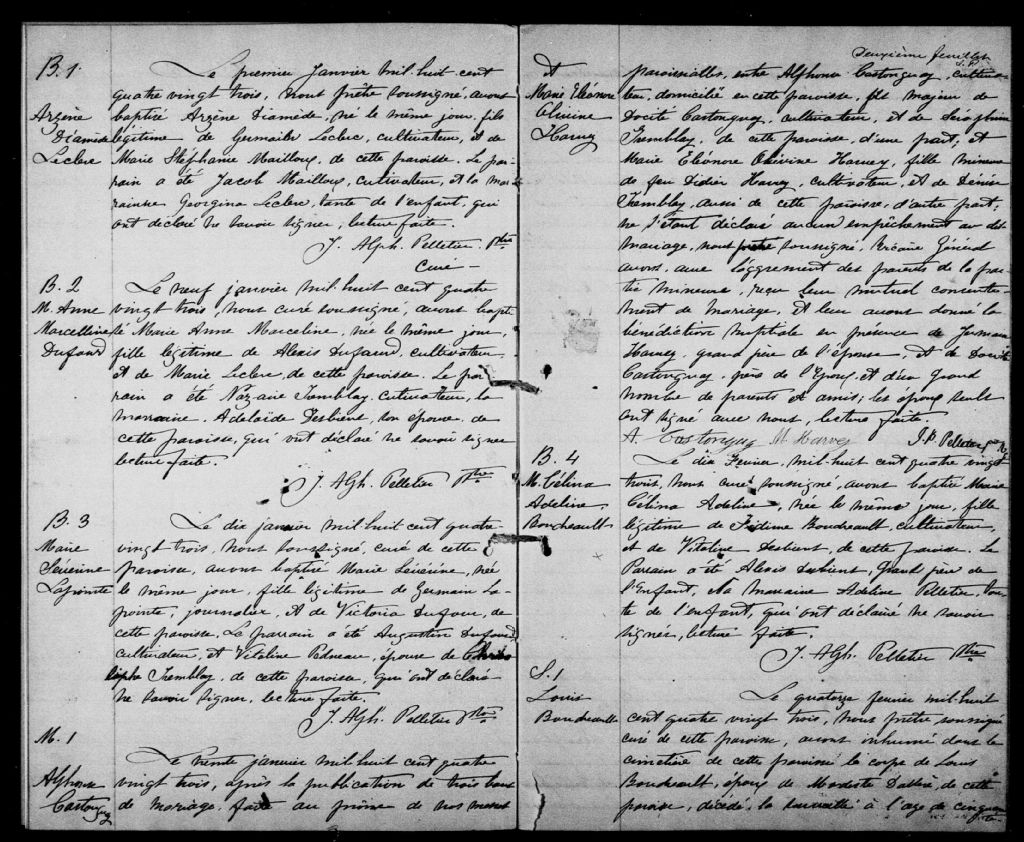 B. 1
Arzène
Diamède
Leclerc
Le premier Janvier mil huit cent
quatre vingt trois, nous prêtre soussigné, avons
baptisé Arzène Diamède, né le même jour, fils
légitime de Germain Leclerc, cultivateur, et de
Marie Stéphanie Mailloux, de cette paroisse. Le par-
rain a été Jacob Mailloux, cultivateur, et la mar-
rainne Georgina Leclerc, tante de l'enfant, qui
ont déclaré ne savoir signer, lecture faite.
J. Alph. Pelletier Ptre
Curé
B. 2
M. Anne
Marcelline
Dufour
Le neuf janvier mil huit cent quatre
vingt trois, nous curé soussigné, avons bapti-
sé Marie Anne Marceline, née le même jour,
fille légitime de Alexis Dufour, cultivateur,
et de Marie Leclerc, de cette paroisse. Le par-
rain a été Nazaire Tremblay, cultivateur, la
marraine Adelaïde Desbiens, son épouse, de
cette paroisse, qui ont déclaré ne savoir signer
lecture faite.
J. Alph. Pelletier Ptre
B. 3
Marie
Séverine
Lapointe
Le dix janvier mil huit cent quatre
vingt trois, nous soussigné, curé de cette
paroisse, avons baptisé Marie Séverine, née
le même jour, fille légitime de Germain La-
pointe, journalier, et de Victoria Dufour, de
cette paroisse. Le parrain a été Augustin Dufour
cultivateur, et Vitaline Pedneau, épouse de Chris
tophe Tremblay, de cette paroisse, qui ont déclaré
ne savoir signer, lecture faite.
J. Alph. Pelletier Ptre
M. 1
Alphonse
Castonguay
Le trente janvier mil huit cent quatre
vingt trois, après la publication de trois bans
de mariage, faite au prône de nos messes
Deuxième feuillet
J.P.
et
Marie Eléonore
Olivine
Harvey
paroissialles, entre Alphonse Castonguay, cultiva-
teur, domicilié en cette paroisse, fils majeur de
Docité Castonguay, cultivateur, et de Séraphine
Tremblay, de cette paroisse d'une part; et
Marie Eléonore Olivine Harvey, fille mineure
de feu Didier Harvey, cultivateur, et de Denise
Tremblay, aussi de cette paroisse, d'autre part;
ne s'étant déclaré aucun empêchement au dit
mariage, nous prêtre soussigné, Vicaire Général
avons, avec l'aggrement des parents de la par-
tie mineure, reçu leur mutuel consente-
ment de mariage, et leur avons donné la
bénédiction nuptiale en présence de Germain
Harvey, grand père de l'épouse, et de Docité
Castonguay, père de l'Epoux, et d'un grand
nombre de parents et amis; les époux seuls
ont signé avec nous, lecture faite.
A. Castonguay M. Harvey J. A. Pelletier ptre
B. 4
M. Célina
Adeline
Boudreault
Le dix Fevrier, mil huit cent quatre vingt
trois, nous curé soussigné, avons baptisé Marie
Célina Adeline, née le même jour, fille
légitime de Fidime Boudreault, cultivateur,
et de Vitaline Desbiens, de cette paroisse. Le
Parrain a été Alexis Desbiens, grand père de
l'Enfant, et la marraine Adeline Pelletier, tan-
te de l'enfant, qui ont déclaré ne savoir
signer, lecture faite.
J. Alph. Pelletier Ptre
S. 1
Louis
Boudreault
Le quatorze fevrier mil huit
cent quatre vingt trois, nous prêtre soussigné
curé de cette paroisse, avons inhumé dans le
cimetière de cette paroisse le corps de Louis
Boudreault, époux de Modeste Dallaire, de cette
paroisse, décédé, la surveille à l'age de cinquante